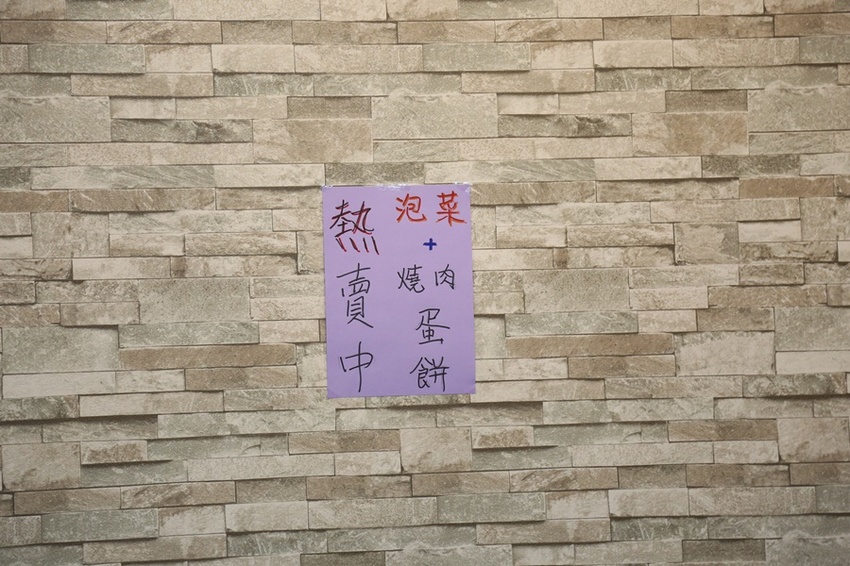 泡菜
+
燒肉
蛋餅
熱賣中